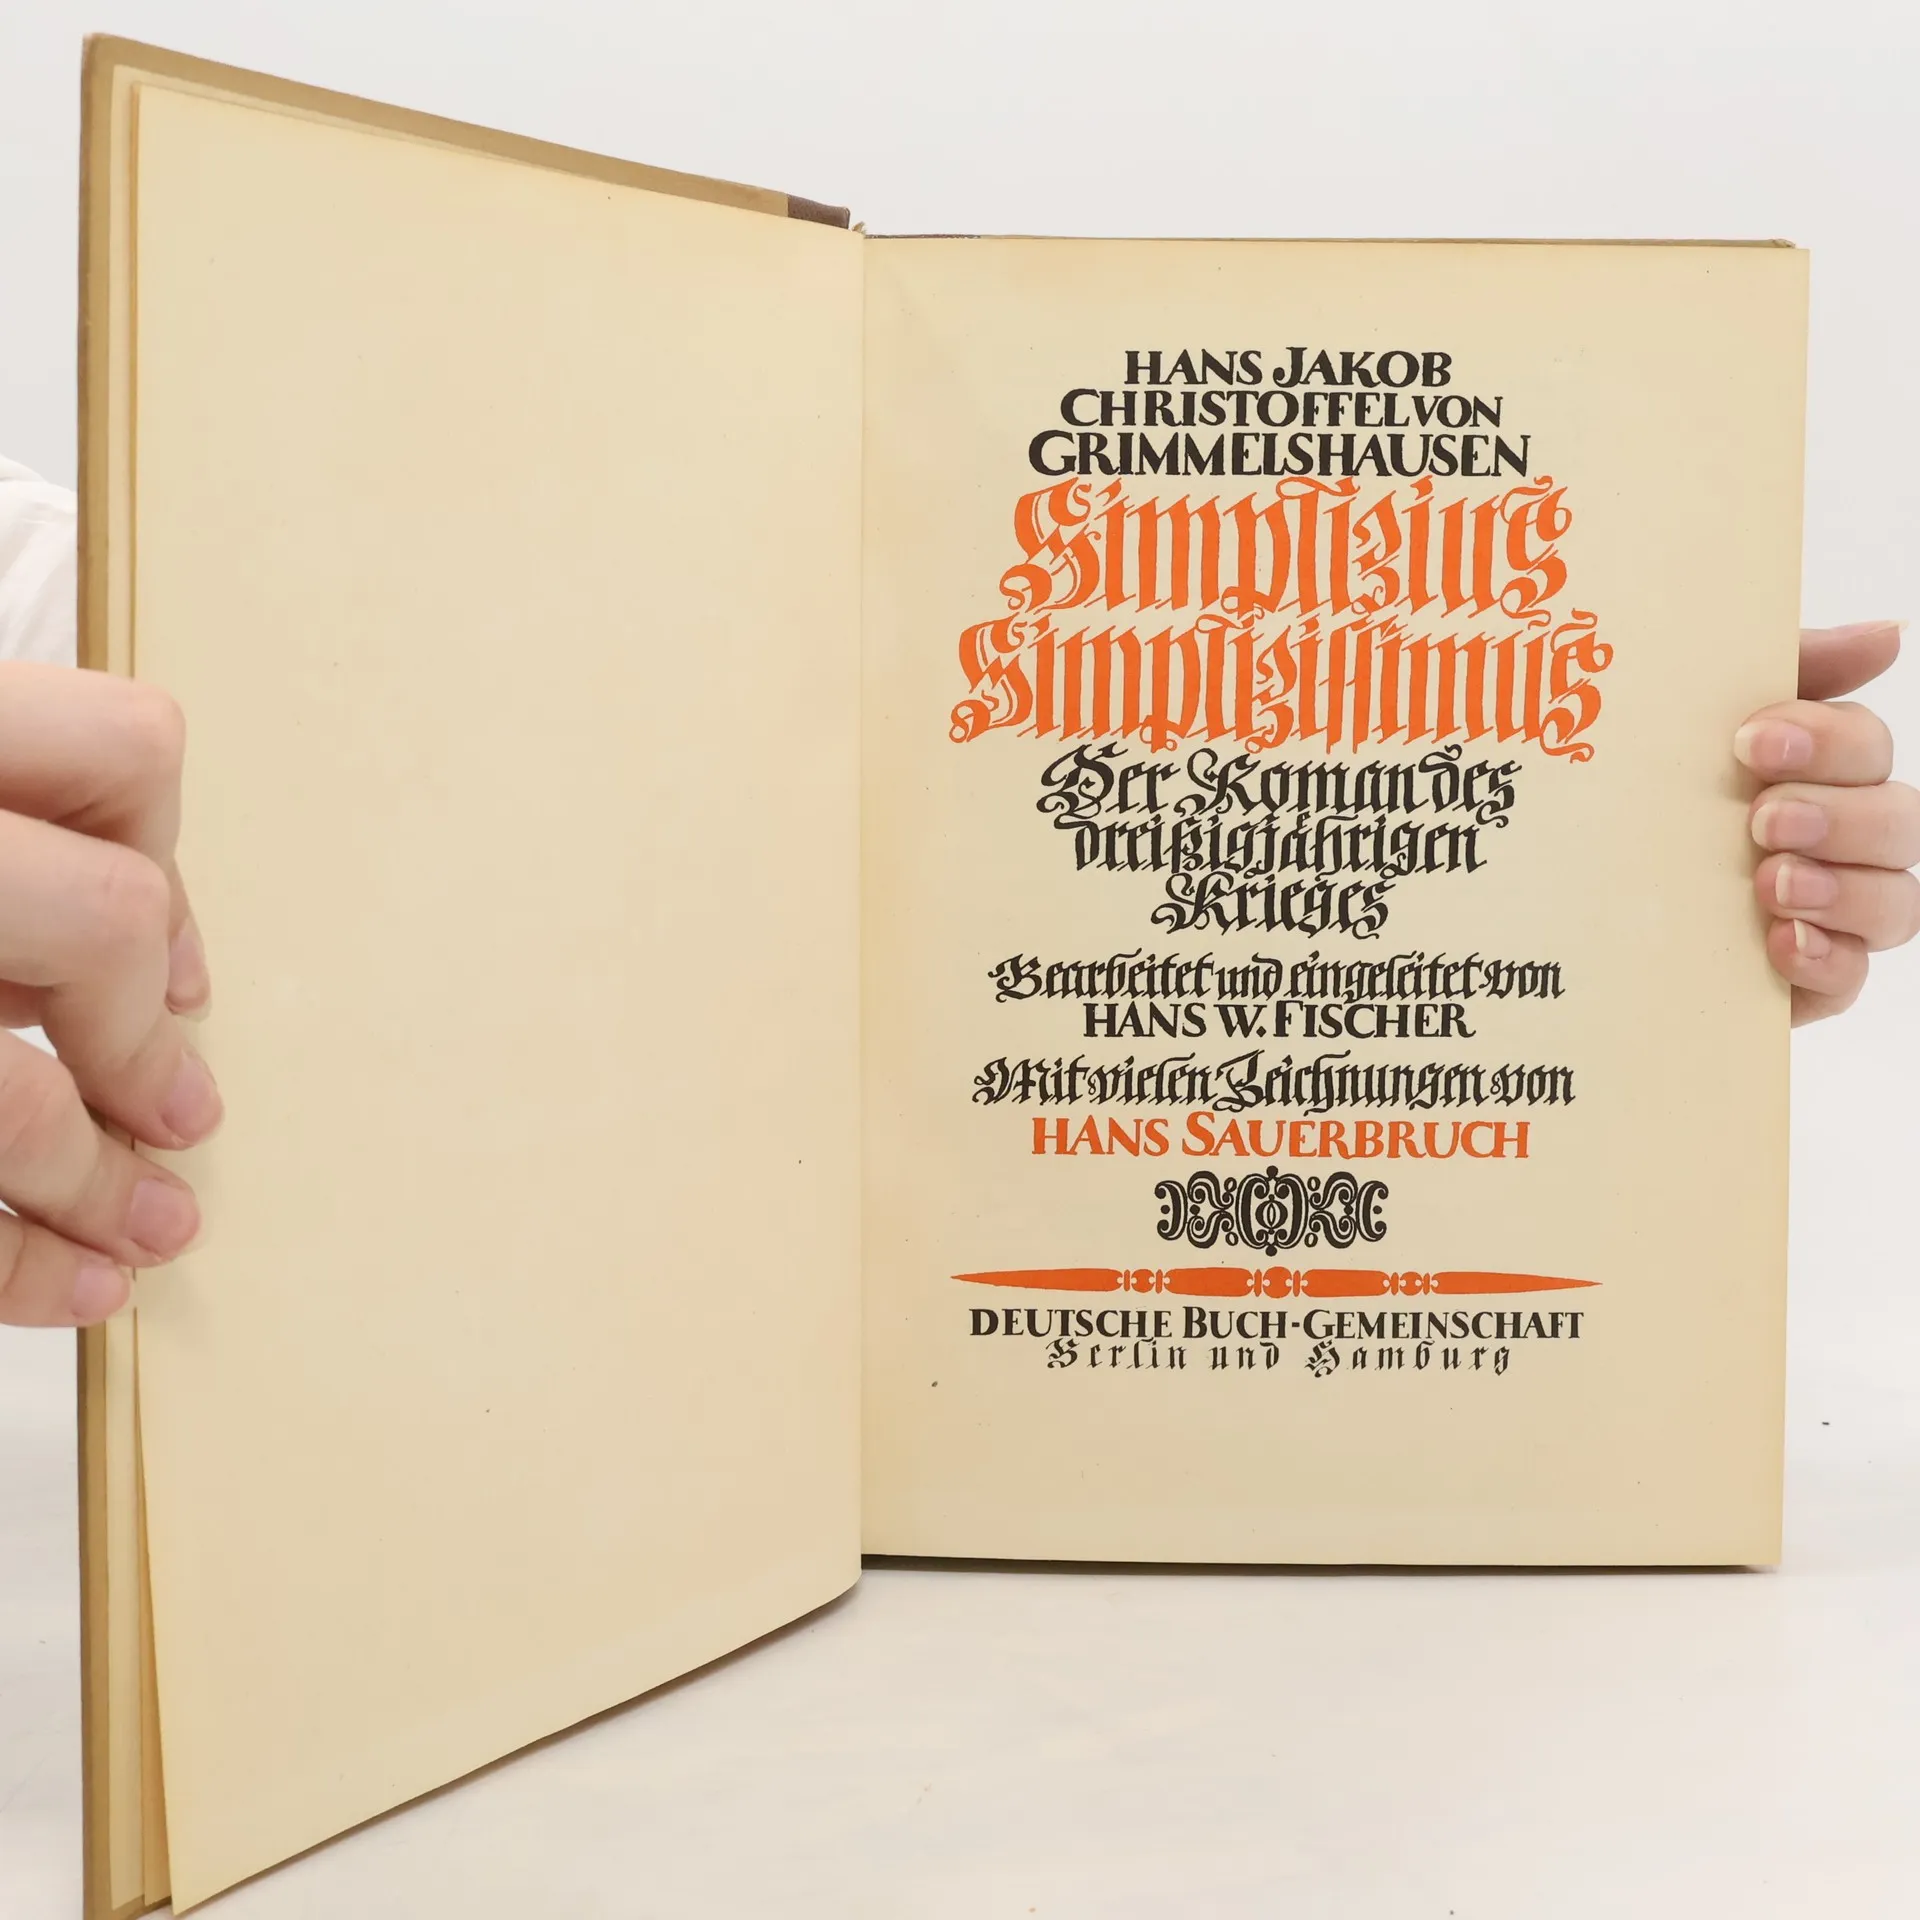 HANS JAKOB
CHRISTOFFEL VON
GRIMMELSHAUSEN
Simplizius
Simplizissimus
Der Roman des
dreißigjährigen
Krieges
Bearbeitet und eingeleitet von
HANS W. FISCHER
Mit vielen Zeichnungen von
HANS SAUERBRUCH
DEUTSCHE BUCH-GEMEINSCHAFT
Berlin und Hamburg